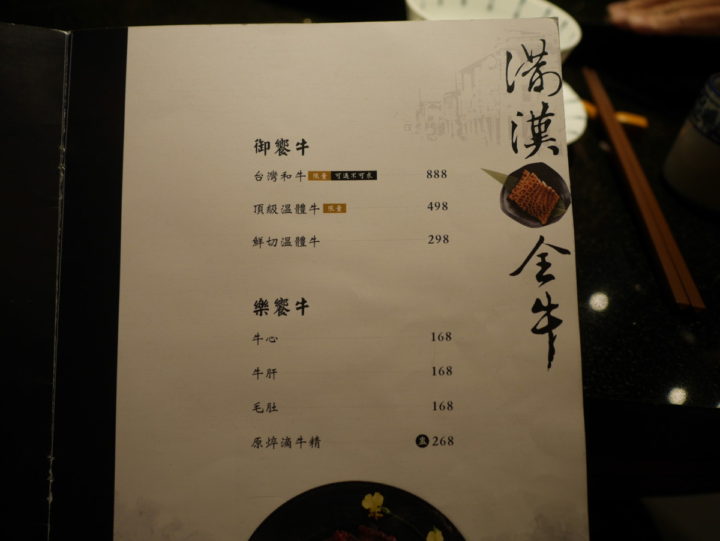 滿漢全牛
御饗牛
台灣和牛 限量 可遇不可求 888
頂級溫體牛 限量 498
鮮切溫體牛 298
樂饗牛
牛心 168
牛肝 168
毛肚 168
原焠滴牛精 盅 268